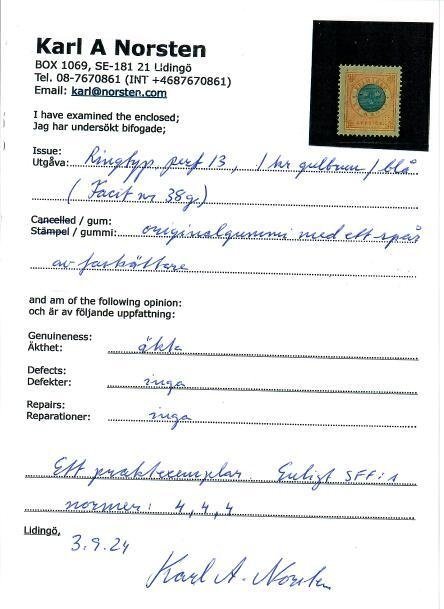 Karl A Norsten
BOX 1069, SE-181 21 Lidingö
Tel. 08-7670861 (INT +4687670861)
Email: karl@norsten.com
I have examined the enclosed;
Jag har undersökt bifogade;
Issue:
Utgåva: Ringtyp perf 13, 1 kr gulbrun / blå
(Facit nr 38g)
Cancelled / gum:
Stämpel / gummi: originalgummi med ett spår
av fastsättare
and am of the following opinion:
och är av följande uppfattning:
Genuineness:
Äkthet: äkta
Defects:
Defekter: inga
Repairs:
Reparationer: inga
Ett praktexemplar Enligt SFF:s
normer: 4, 4, 4
Lidingö,
3.9.24
Karl A. Norsten